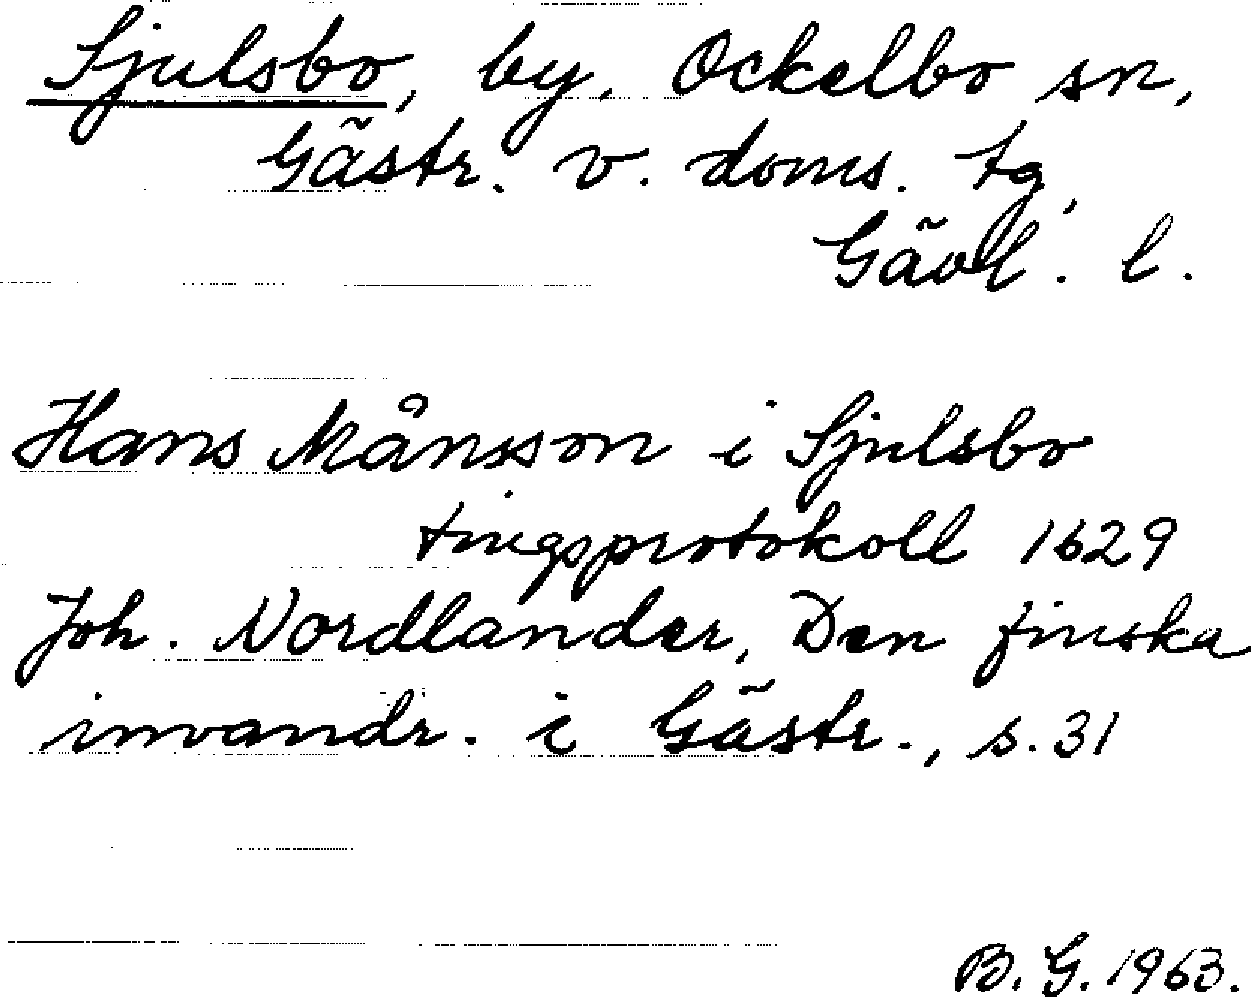 Sjulsbo, by, Ockelbo sn,
Gästr. v. doms. tg,
Gävl. l.
Hans Månsson i Sjulsbo
tingsprotokoll 1629
Joh. Nordlander, Den finska
invandr. i Gästr., s. 31
B. G. 1963.